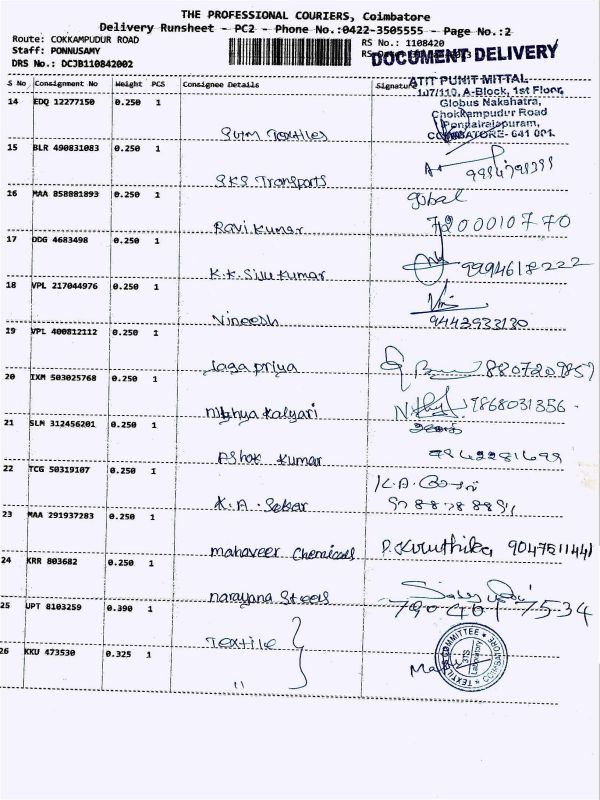 THE PROFESSIONAL COURIERS, Coimbatore
Delivery Runsheet - PC2 - Phone No.:0422-3505555 - Page No.:2
Route: COKKAMPUDUR ROAD
Staff: PONNUSAMY
DRS No.: DCJB110842002
RS No.: 1108420
DOCUMENT DELIVERY
S No Consignment No Weight PCS Consignee Details Signature
ATIT PUNIT MITTAL
107/110, A-Block, 1st Floor,
Globus Nakshatra,
Chokkampudur Road
Ponnairajapuram,
COIMBATORE- 641 001.
14 EDQ 12277150 0.250 1
Textiles
15 BLR 490831083 0.250 1
SKS Transports
16 MAA 858881893 0.250 1 gubal
Ravi kumar 7200010770
17 DDG 4683498 0.250 1
K.K. Sivu kumar 9994618222
18 VPL 217044976 0.250 1
Vineesh 9443933130
19 VPL 400812112 0.250 1
Jaga priya 8807209857
20 IXM 503025768 0.250 1
Nithya Kalyari 9868031356
21 SLM 312456201 0.250 1
Ashok Kumar
22 TCG 50319107 0.250 1 K.A.
K.A. Sekar
23 MAA 291937283 0.250 1
Mahaveer Chemicals P. Kiruthika 9047511441
24 KRR 803682 0.250 1
narayana Steels
25 UPT 8103259 0.390 1 7904617534
Textile
26 KKU 473530 0.325 1
"
TEXTILES COMMITTEE
Laboratory
COIMBATORE